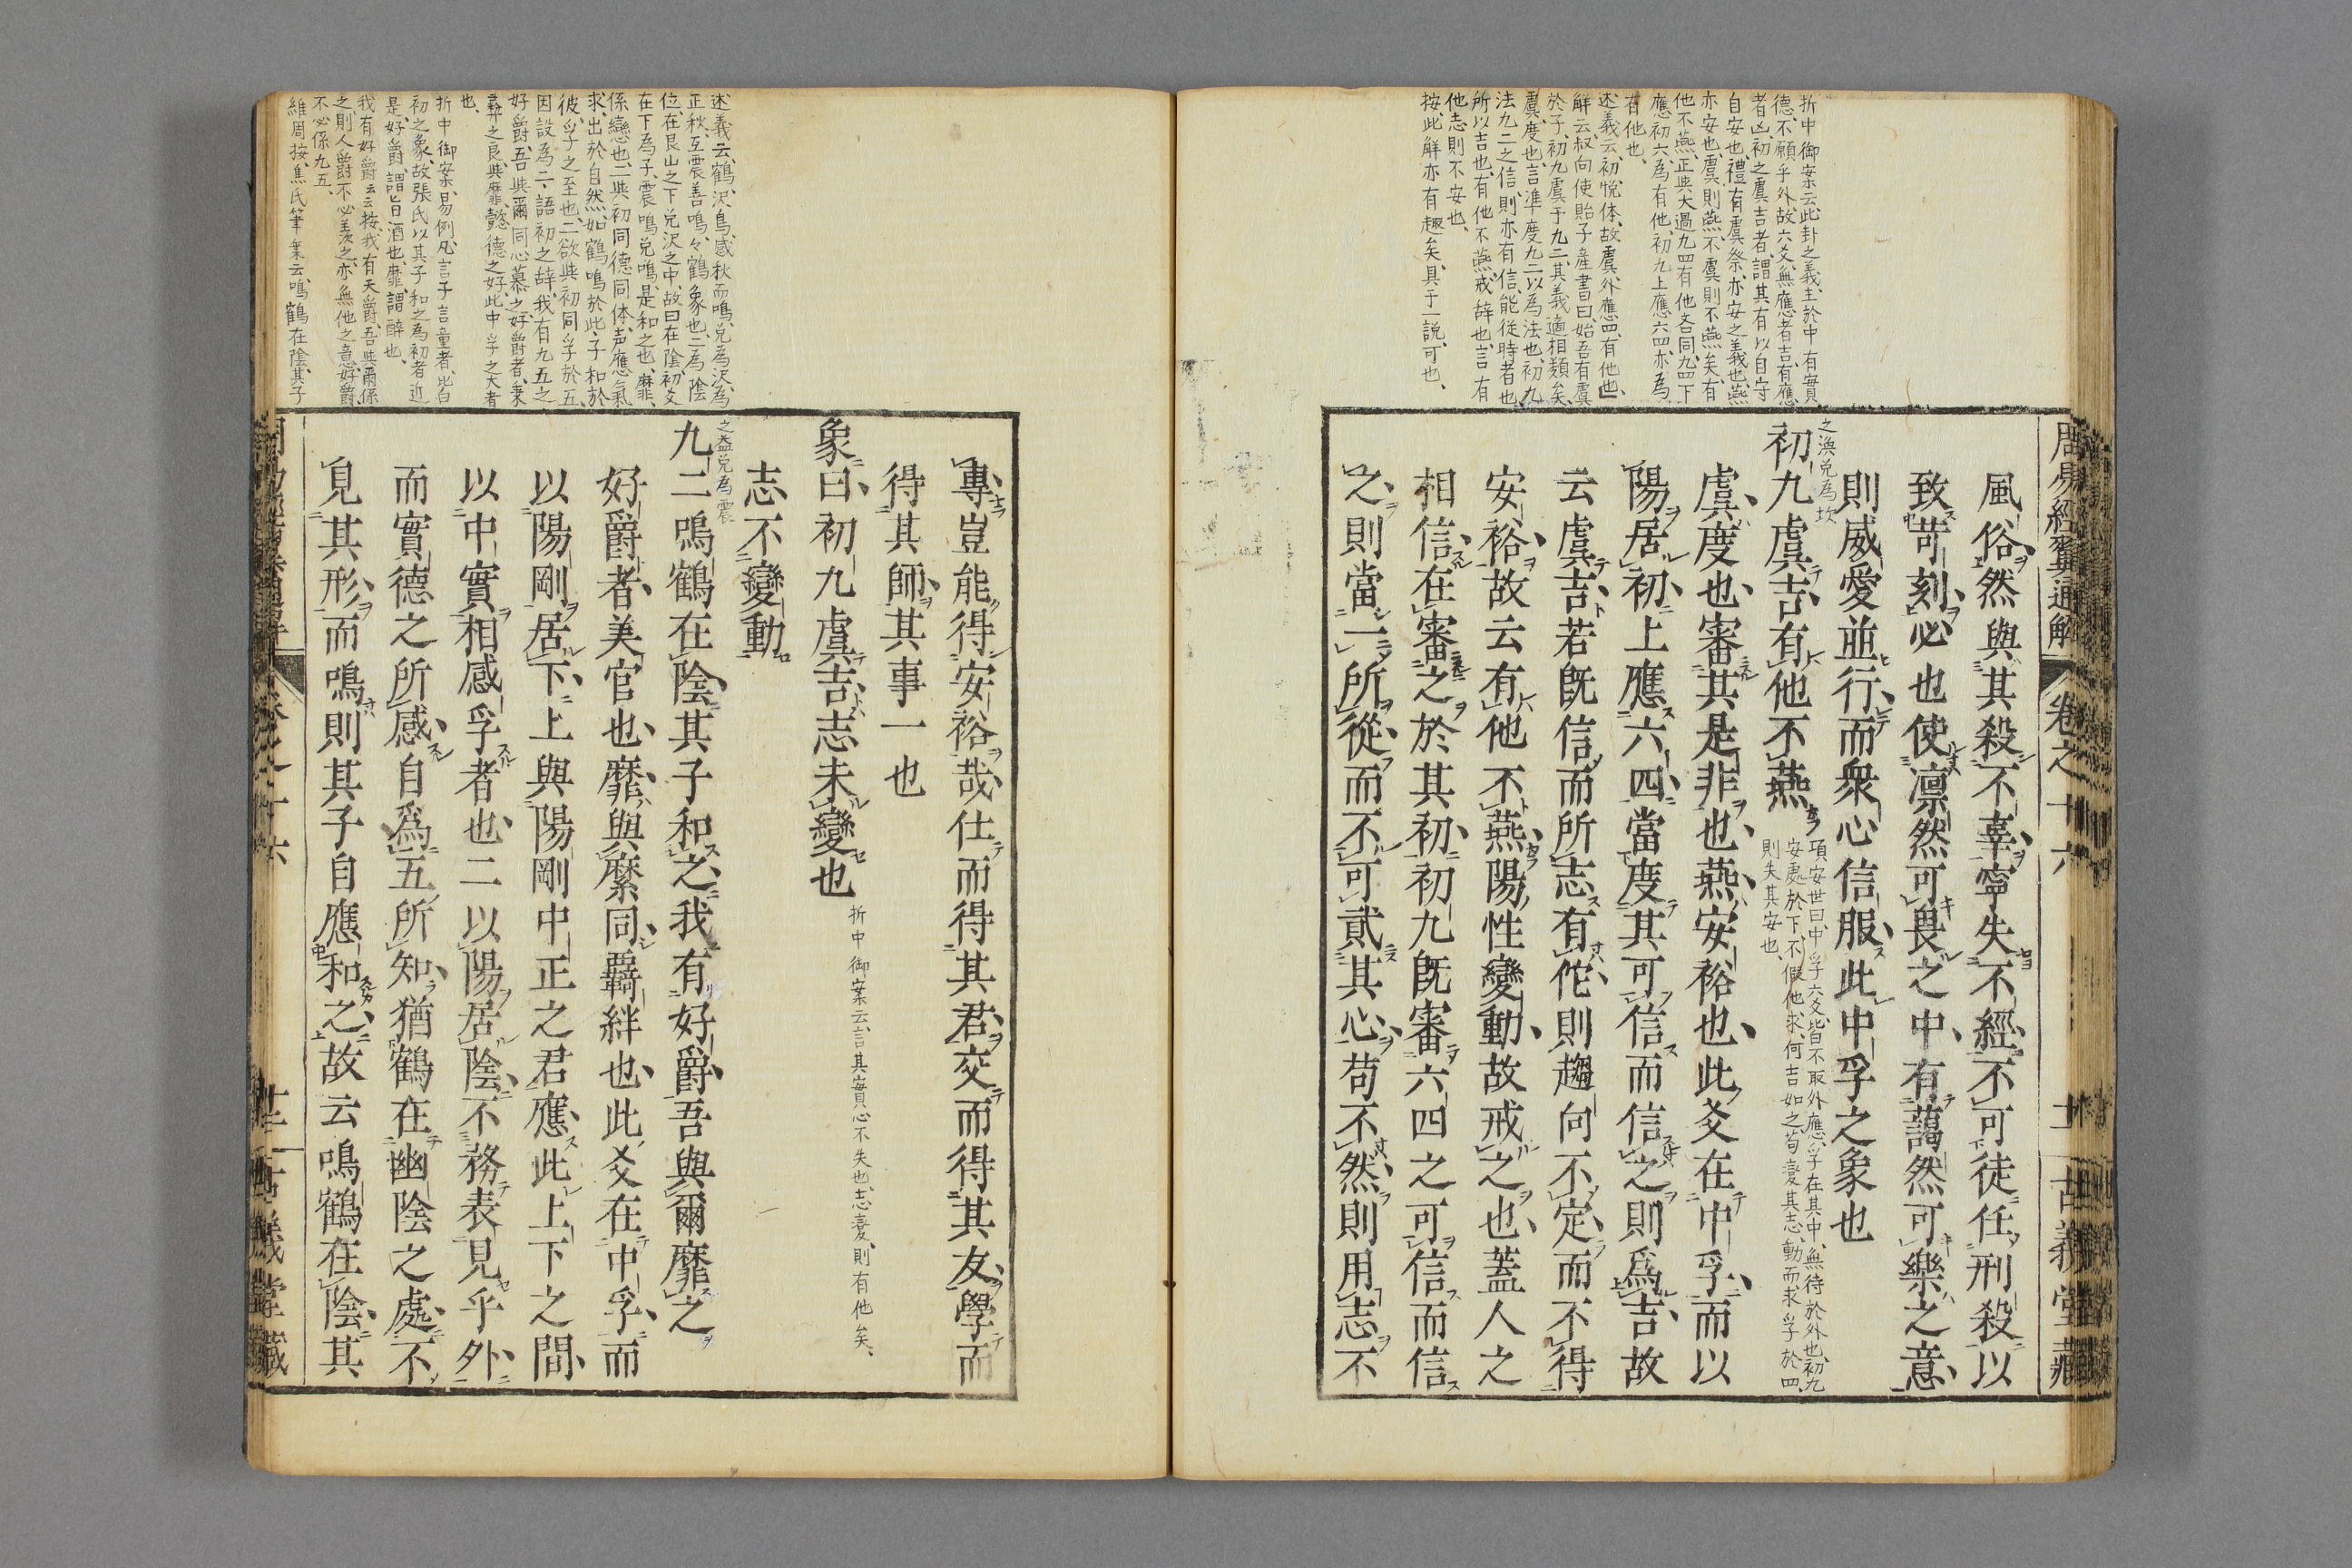 折中御案云此卦之義主於中有實
德不願乎外故六爻無應者吉有應
者凶初之虞吉者謂其有以自守
自安也禮有虞祭亦安之義也燕
亦安也虞則燕不虞則不燕矣有
他不燕正與大過九四有他吝同九四下
應初六為有他初九上應六四亦為
有他也
述義云初悅体故虞外應四有他也
解云叔向使貽子產書曰始吾有虞
於子初九虞于九二其義適相類矣
虞度也言準度九二以為法也初九
法九二之信則亦有信能從時者也
所以吉也有他不燕戒辞也言有
他志則不安也
按此解亦有趣矣具于一說可也
周易經翼通解 卷之十六 十一 古義堂藏
風俗然與其殺不辜寧失不經不可徒任刑殺以
致苛刻必也使凛然可畏之中有藹然可樂之意
則威愛並行而衆心信服此中孚之象也
之渙兌為坎
初九虞吉有他不燕
項安世曰中孚六爻皆不取外應孚在其中無待於外也初九
安處於下不假他求何吉如之苟変其志動而求孚於四
則失其安也
虞度也審其是非也燕安裕也此爻在中孚而以
陽居初上應六四當度其可信而信之則爲吉故
云虞吉若旣信而所志有佗則趨向不定而不得
安裕故云有他不燕陽性變動故戒之也蓋人之
相信在審之於其初初九旣審六四之可信而信
之則當一所從而不可貳其心苟不然則用志不
述義云鶴沢鳥感秋而鳴兌為沢為
正秋互震善鳴々鶴象也二為陰
位在艮山之下兌沢之中故曰在陰初爻
在下為子震鳴兌鳴是和之也靡
係戀也二與初同德同体声應氣
求出於自然如鶴鳴於此子和於
彼孚之至也二欲與初同孚於五
因設為二語初之辞我有九五之
好爵吾與爾同心慕之好爵者秉
彝之良與靡懿德之好此中孚之大者
也
折中御案易例凡言子言童者皆
初之象故張氏以其子和之為初者近
是好爵謂旨酒也靡謂醉也
我有好爵云云按我有天爵吾與爾係
之則人爵不必羨之亦無他之意好爵
不必係九五
維周按焦氏筆乗云鳴鶴在陰其子
專豈能得安裕哉仕而得其君交而得其友學而
得其師其事一也
象曰初九虞吉志未變也
折中御案云言其實心不失也志変則有他矣
志不變動
之益兌為震
九二鳴鶴在陰其子和之我有好爵吾與爾靡之
好爵者美官也靡與縻同羇絆也此爻在中孚而
以陽剛居下上與陽剛中正之君應此上下之間
以中實相感孚者也二以陽居陰不務表見乎外
而實德之所感自爲五所知猶鶴在幽陰之處不
見其形而鳴則其子自應和之故云鳴鶴在陰其